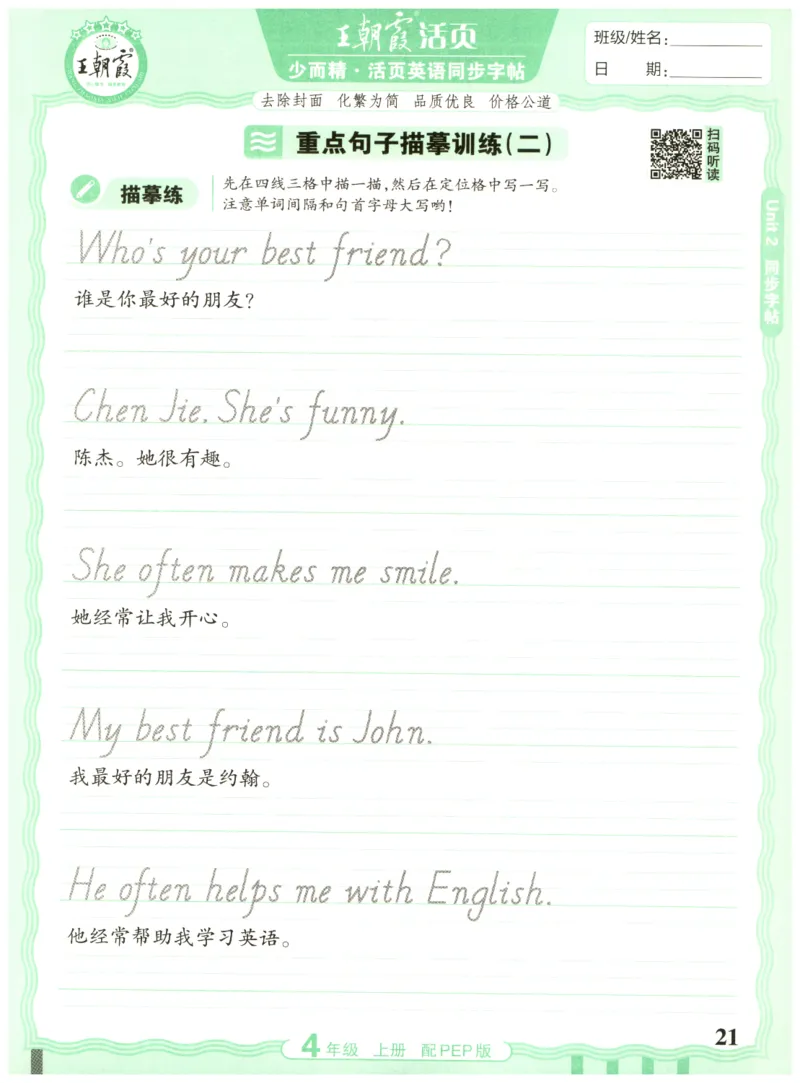 王朝霞®活页
少而精·活页英语同步字帖
王朝霞®
班级/姓名:
日 期:
去除封面 化繁为简 品质优良 价格公道
重点句子描摹训练(二)
扫码听读
描摹练
先在四线三格中描一描,然后在定位格中写一写。
注意单词间隔和句首字母大写哟!
Unit 2 同步字帖
Who's your best friend?
谁是你最好的朋友?
Chen Jie. She's funny.
陈杰。她很有趣。
She often makes me smile.
她经常让我开心。
My best friend is John.
我最好的朋友是约翰。
He often helps me with English.
他经常帮助我学习英语。
4年级 上册 配PEP版
21